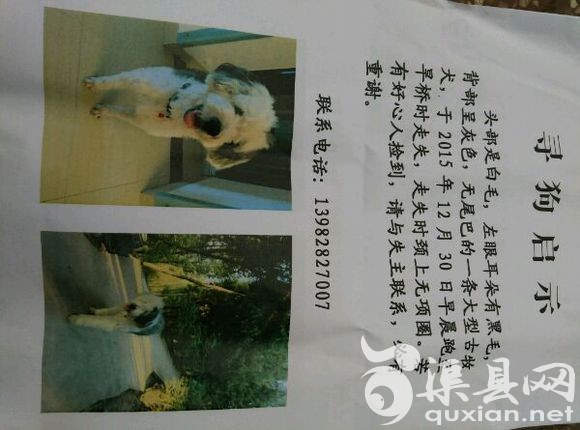 寻狗启示
头部是白毛，左眼耳朵有黑毛，
背部呈灰色，无尾巴的一条大型古牧
犬，于 2015 年 12 月 30 日早晨跑至
旱桥时走失，走失时颈上无项圈。若
有好心人捡到，请与失主联系，必有
重谢。
联系电话：13982827007
渠县网
quxian.net